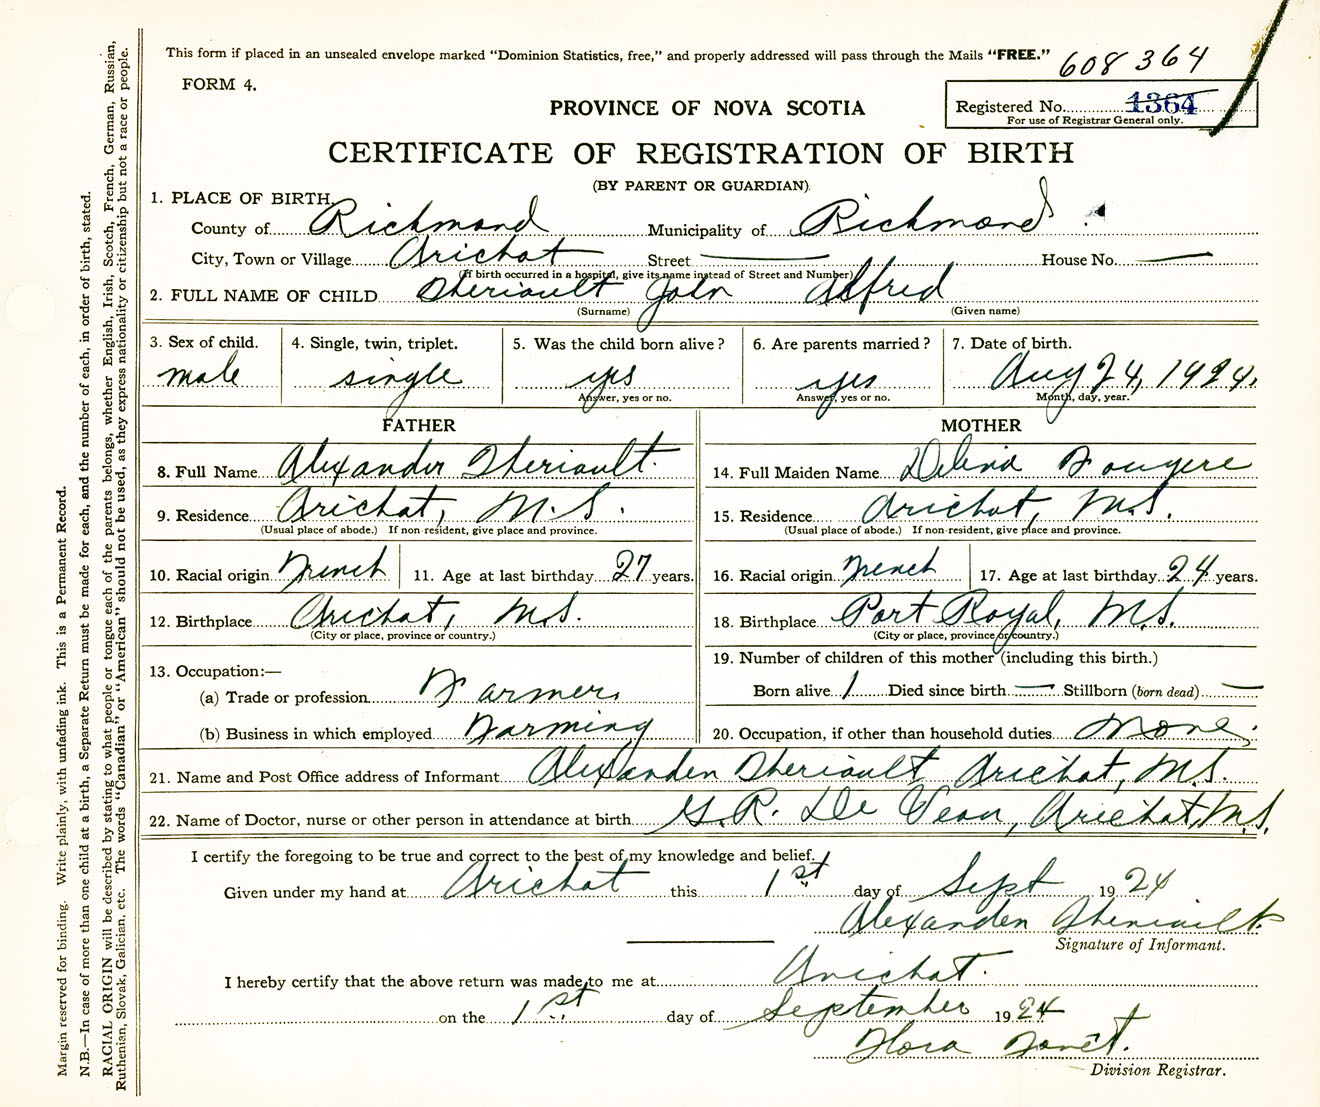 This form if placed in an unsealed envelope marked "Dominion Statistics, free," and properly addressed will pass through the Mails "FREE."
608364
FORM 4.
PROVINCE OF NOVA SCOTIA
Registered No. 1364
For use of Registrar General only.
CERTIFICATE OF REGISTRATION OF BIRTH
(BY PARENT OR GUARDIAN)
1. PLACE OF BIRTH.
County of Richmond Municipality of Richmond
City, Town or Village Arichat Street — House No. —
(If birth occurred in a hospital, give its name instead of Street and Number)
2. FULL NAME OF CHILD Theriault John Alfred
(Surname) (Given name)
3. Sex of child. 4. Single, twin, triplet. 5. Was the child born alive? 6. Are parents married? 7. Date of birth.
male single yes yes Aug 24, 1924.
Answer, yes or no. Answer, yes or no. Month, day, year.
FATHER MOTHER
8. Full Name Alexander Theriault. 14. Full Maiden Name Delina Fougere
9. Residence Arichat, N.S. 15. Residence Arichat, N.S.
(Usual place of abode.) If non-resident, give place and province. (Usual place of abode.) If non-resident, give place and province.
10. Racial origin French 11. Age at last birthday 27 years. 16. Racial origin French 17. Age at last birthday 24 years.
12. Birthplace Arichat, N.S. 18. Birthplace Port Royal, N.S.
(City or place, province or country.) (City or place, province or country.)
13. Occupation:— 19. Number of children of this mother (including this birth.)
(a) Trade or profession Farmer Born alive 1 Died since birth — Stillborn (born dead) —
(b) Business in which employed Farming 20. Occupation, if other than household duties None.
21. Name and Post Office address of Informant Alexander Theriault Arichat, N.S.
22. Name of Doctor, nurse or other person in attendance at birth G.R. De Veau, Arichat, N.S.
I certify the foregoing to be true and correct to the best of my knowledge and belief.
Given under my hand at Arichat this 1st day of Sept 1924
Alexander Theriault.
Signature of Informant.
I hereby certify that the above return was made to me at Arichat.
on the 1st day of September 1924
Flora
Division Registrar.
Margin reserved for binding. Write plainly, with unfading ink. This is a Permanent Record.
N.B.—In case of more than one child at a birth, a Separate Return must be made for each, and the number of each, in order of birth, stated.
RACIAL ORIGIN will be described by stating to what people or tongue each of the parents belongs, whether English, Irish, Scotch, French, German, Russian,
Ruthenian, Slovak, Galician, etc. The words "Canadian" or "American" should not be used, as they express nationality or citizenship but not a race or people.